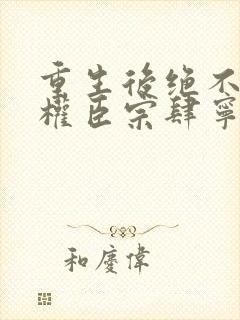 重生后绝不
權臣宗肆寧
和慶偉